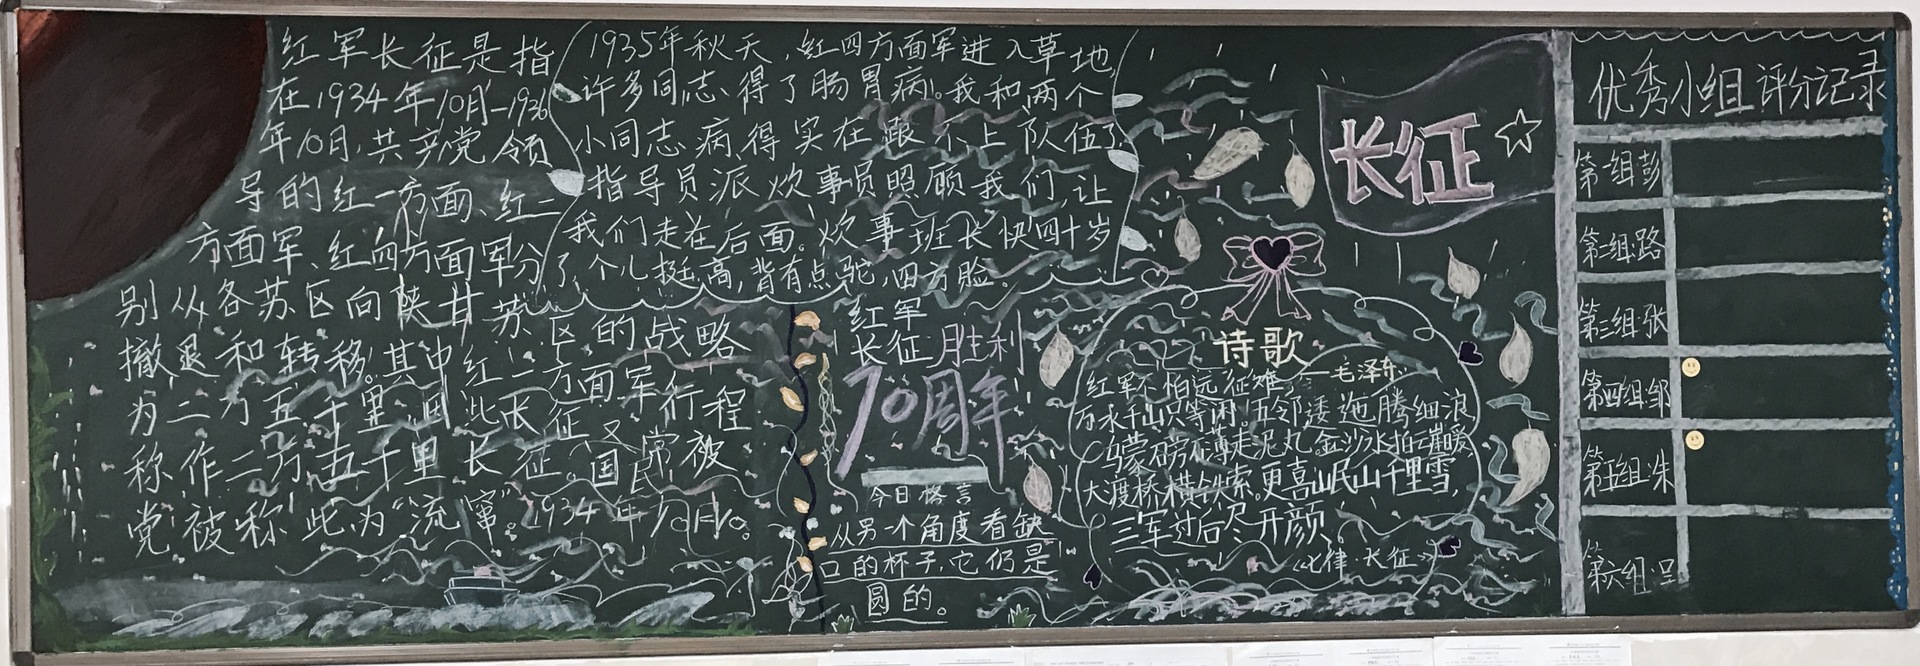 红军长征是指
在1934年10月-1936
年10月,共产党领
导的红一方面、红二
方面军、红四方面军分
别从各苏区向陕甘苏区的战略
撤退和转移。其中红一方面军行程
为二万五千里,因此长征又常被
称作二万五千里长征。国民
党被称此为“流窜”。1934年10月10。
1935年秋天,红四方面军进入草地,
许多同志、得了肠胃病。我和两个
小同志病得实在跟不上队伍了,
指导员派炊事员照顾我们,让
我们走在后面。炊事班长快四十岁
了,个儿挺高,背有点驼,四方脸。
红军
长征胜利
70周年
今日格言
从另一个角度看缺
口的杯子,它仍是
圆的。
长征
诗歌
——毛泽东
红军不怕远征难,
万水千山只等闲。五邻逶迤腾细浪
乌蒙磅礴走泥丸。金沙水拍云崖暖
大渡桥横铁索。更喜岷山千里雪,
三军过后尽开颜。
《七律·长征》
优秀小组评分记录
第一组:彭
第二组:路
第三组:张
第四组:邹
第五组:朱
第六组:吕